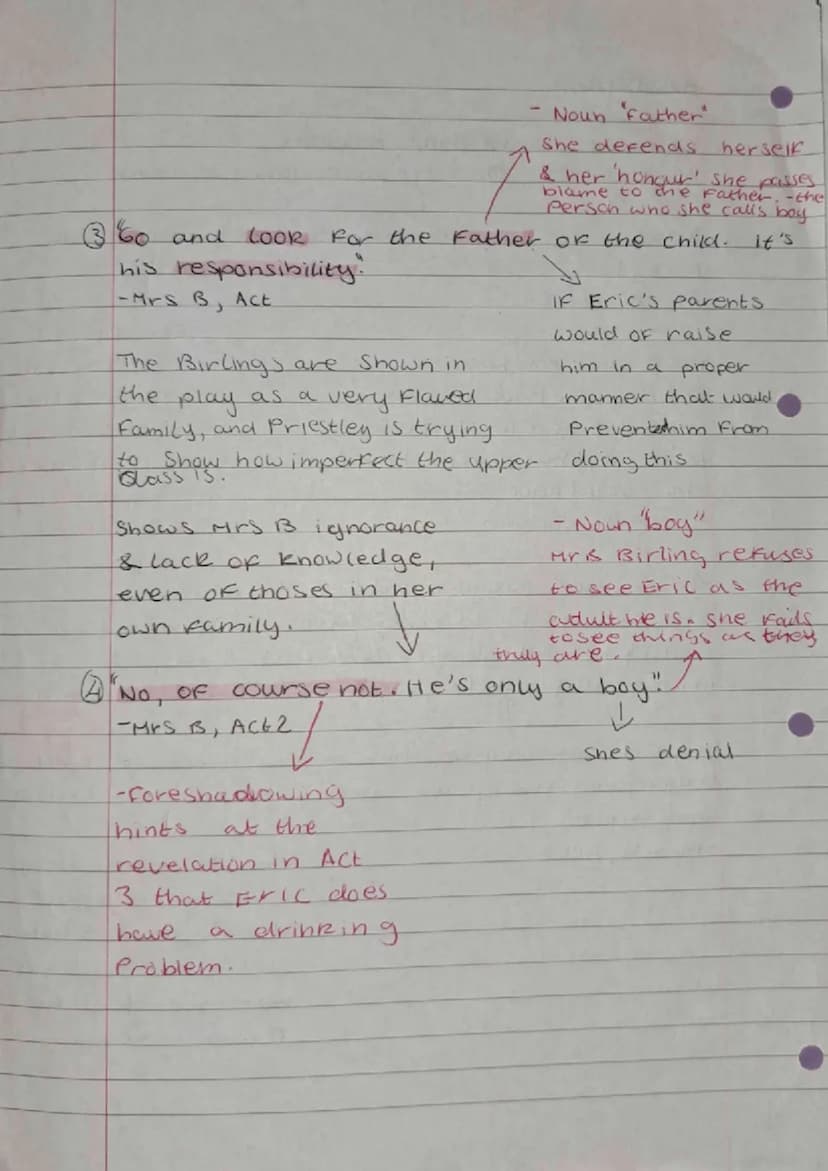 - Noun "Father"
She defends herself
& her 'honour' she passes
blame to the Father. - the
Person who she calls boy
③ "Go and look for the Father of the child. It's
his responsibility".
- Mrs B, Act
IF Eric's parents
would of raise
him in a proper
manner that would
Prevent him From
doing this
The Birlings are shown in
the play as a very Flawed
Family, and Priestley is trying
to show how imperfect the upper
class is.
Shows Mrs B ignorance
& lack of knowledge,
even of thoses in her
own family.
- Noun "boy"
Mrs Birling refuses
to see Eric as the
adult he is. she fails
to see things as they
truly are.
④ "No, of course not. He's only a boy".
- Mrs B, Act 2
shes denial
- Foreshadowing
hints at the
revelation in Act
3 that Eric does
have a drinking
Problem.